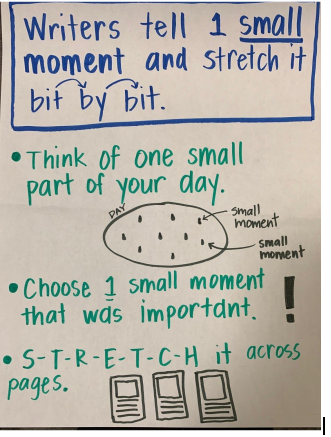 Writers tell 1 small
moment and stretch it
bit by bit.
• Think of one small
part of your day.
DAY
small
moment
small
moment
• Choose 1 small moment
that was important. !
• S-T-R-E-T-C-H it across
pages.